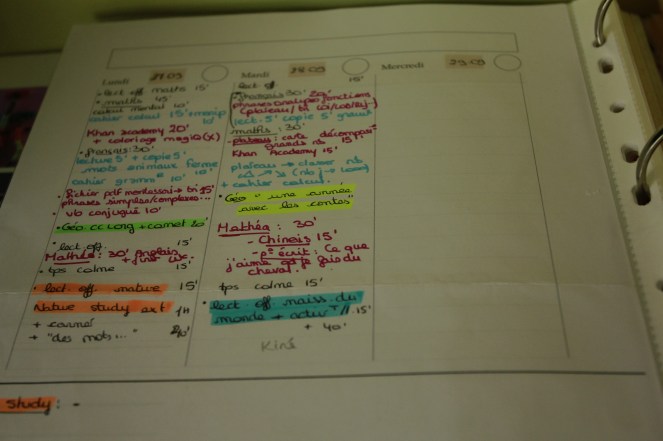 Lundi 27.05
• lect off maths 15'
• maths 45
calcul mental 10'
cahier calcul 15'
10'
Khan academy 20'
+ coloriage magiq (x)
• français: 30'
lecture 5' + copie 5'
mots animaux ferme
cahier 10' 10'
• fichier pdf montessori → tri 15'
phrases simples/complexes...
vb conjugué 10'
• Géo cc long + carnet 30'
• lect off. 15'
Mathéa: 30' anglais
• tps calme 15'
• lect. off nature 15'
Nature study ext 1H
+ carnet
+ "des mots..." 20'
Mardi 28.05
• lect off 15'
• français 30'
phrases analyse fonctions
(plateau/
lect. 5' copie 5'
• maths: 30'
- plateau: carte décompos°
grands nb 15'
Khan Academy 15'
plateau → classer nb
+ cahier calcul.
• Géo "une année
avec les contes"
Mathéa: 30'
- Chinois 15'
- p° écrit: Ce que
j'aime
cheval.
tps calme 15'
• lect off naiss. du
monde + activ // 15'
+ 40'
Kiné
Mercredi 29.05
Study: -